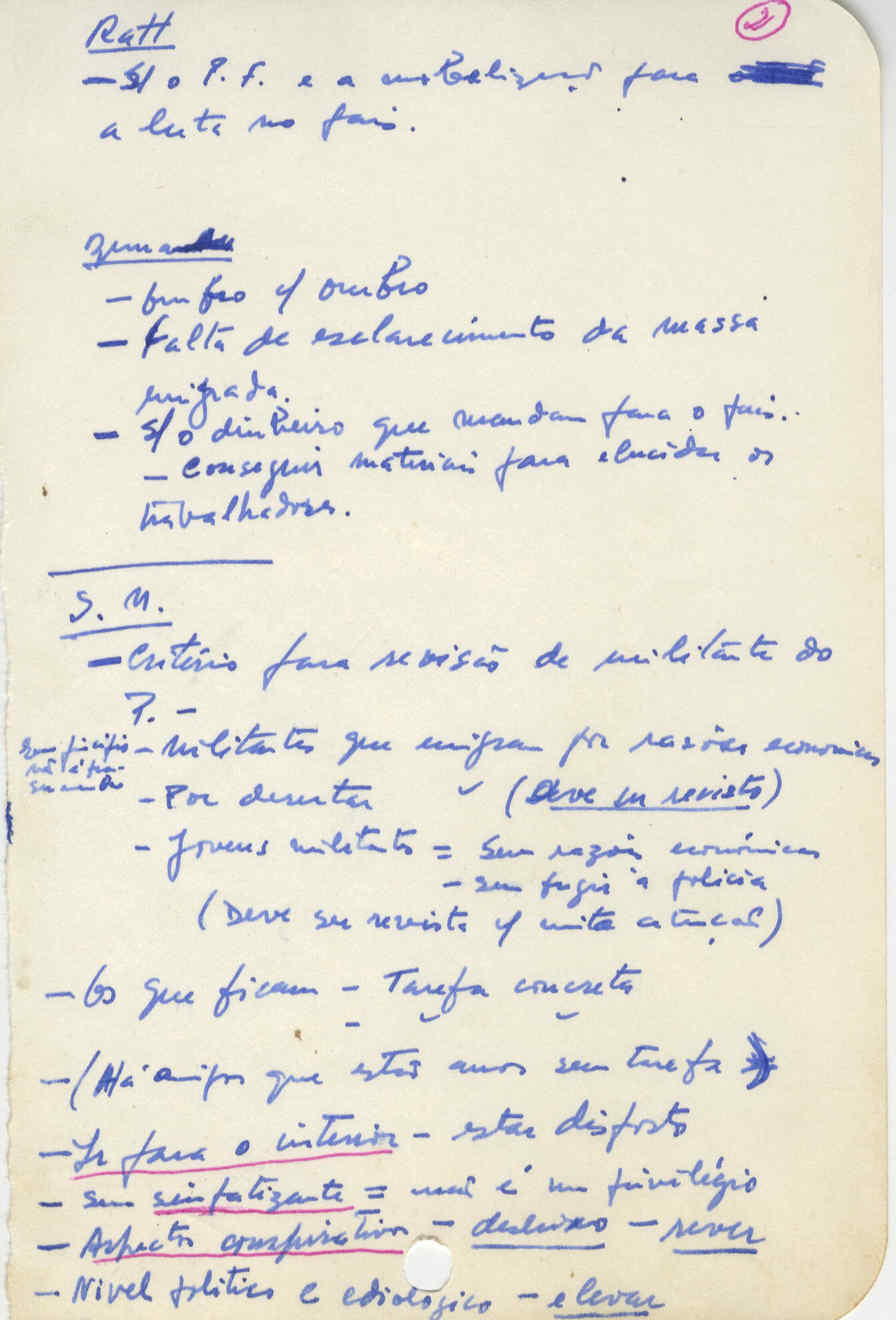 2
Ratt
- S/ o P. F. e a mobilização para
a luta no país.
Zuma
- ombro c/ ombro
- Falta de esclarecimento da massa
emigrada.
- S/ o dinheiro que mandam para o país.
- Conseguir materiais para elucidar os
trabalhadores.
S. M.
- Critério para revisão de militante do
P. -
- Militantes que emigram por razões economicas
- Por desertar (Deve ser revisto)
- Jovens militantes = Sem razões económicas
- sem fugir à polícia
(Deve ser revista c/ muita atenção)
- Os que ficam - Tarefa concreta
- (Há amigos que estão anos sem tarefa)
- Ir para o interior - estar disposto
- Ser simpatizante = não é um privilégio
- Aspectos conspirativos - desleixo - rever
- Nivel politico e ediologico - elevar